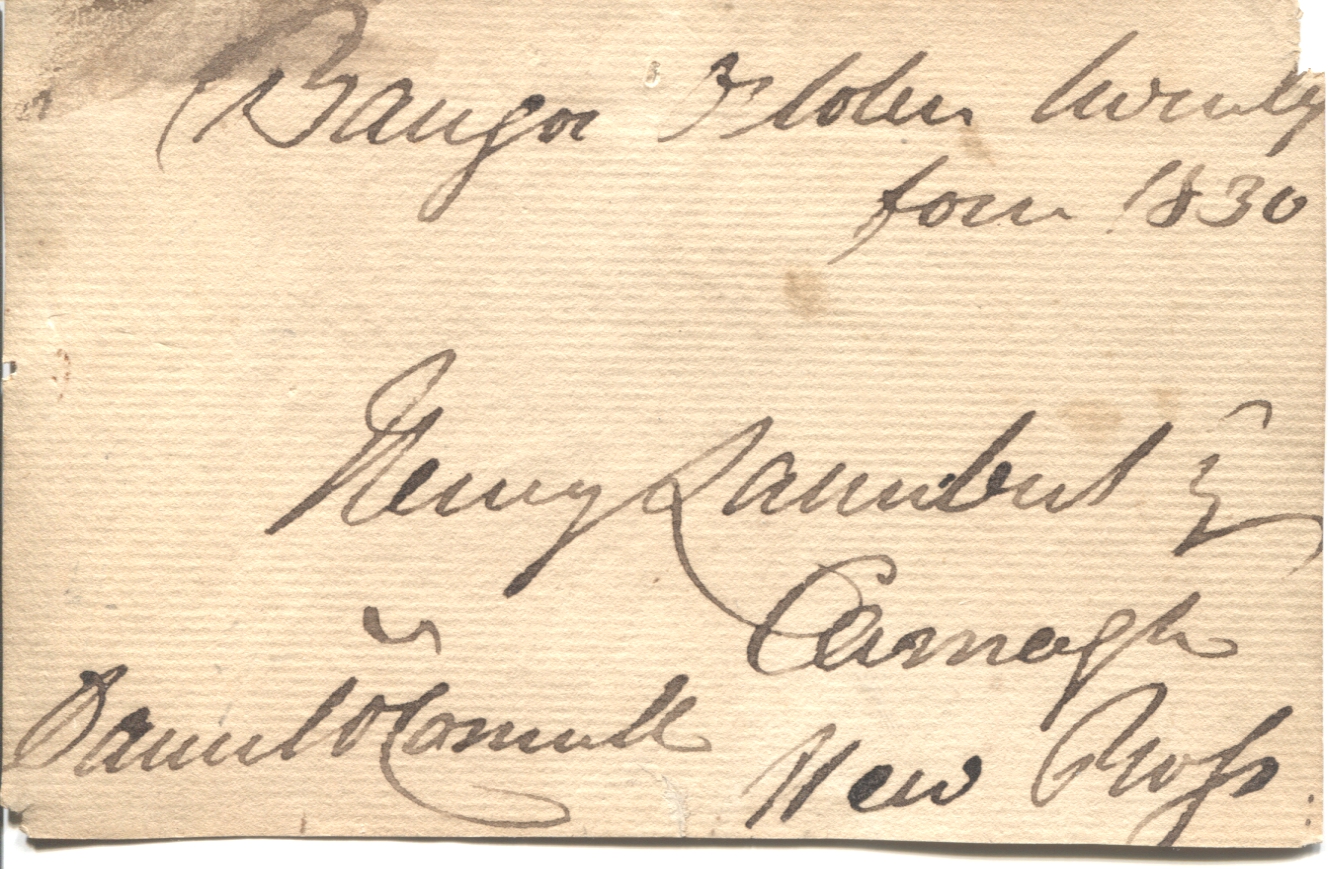 Bangor October twenty
four 1830
Henry Lambert Esq
Carnagh
Daniel O'Connell
New Ross